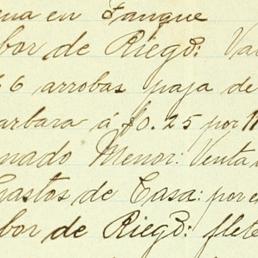 ena en Tanque
bor de Riego: Va
6 arrobas paja de
arbara á $0.25 por
nado Menor: Venta
Gastos de Casa: por
bor de Riego: flete